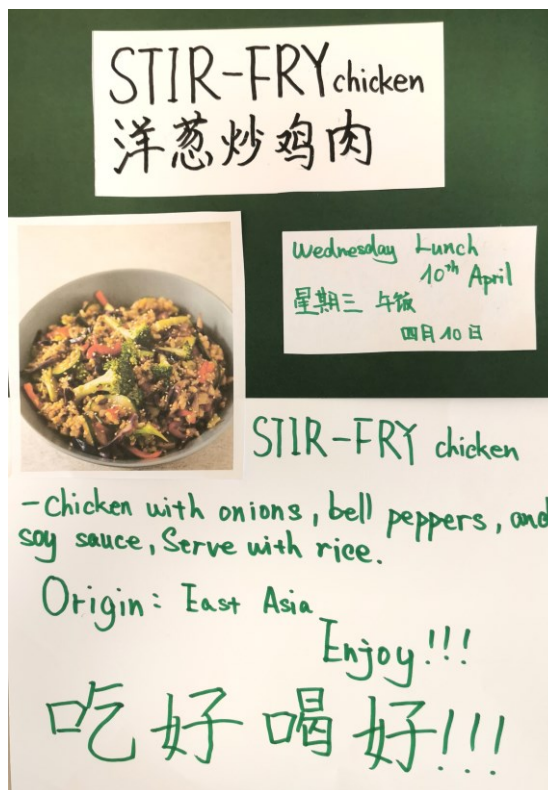 STIR-FRY chicken
洋葱炒鸡肉
Wednesday Lunch
10th April
星期三 午饭
四月10日
STIR-FRY chicken
-Chicken with onions, bell peppers, and
soy sauce, Serve with rice.
Origin: East Asia
Enjoy!!!
吃好喝好!!!